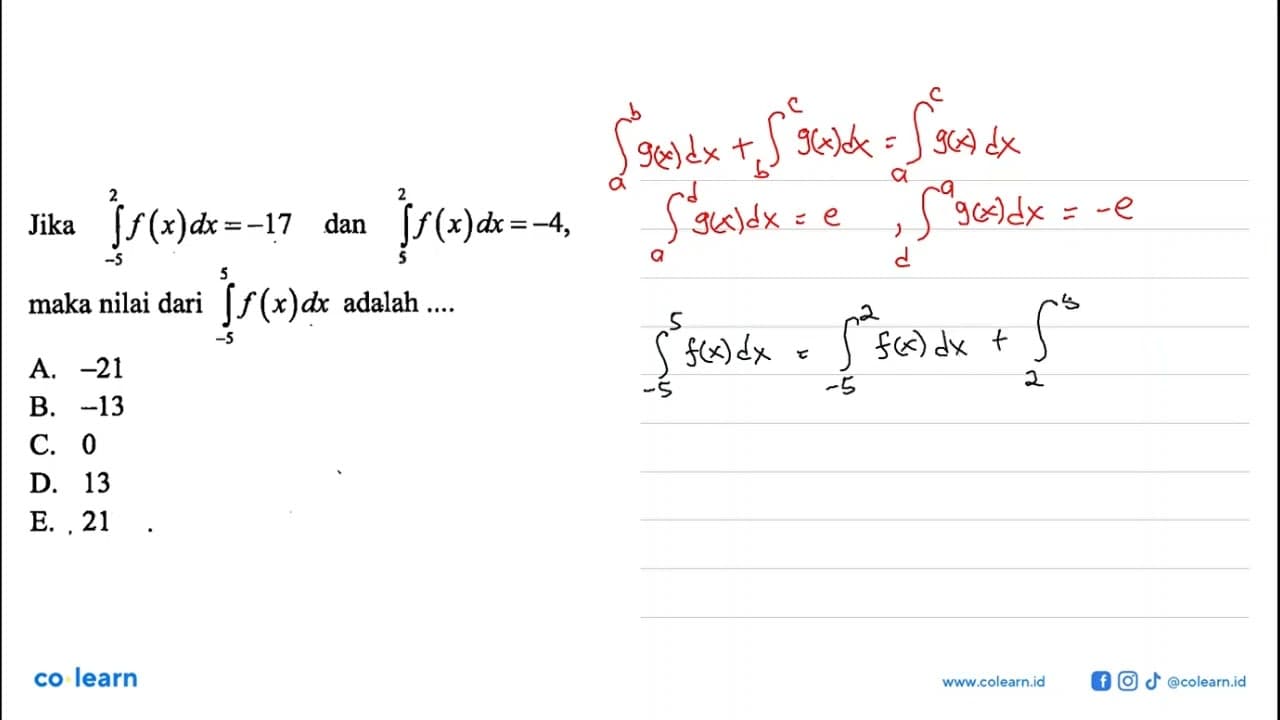 Jika ∫_{-5}^{2} f(x) dx = –17 dan ∫_{5}^{2} f(x) dx = –4,
maka nilai dari ∫_{-5}^{5} f(x) dx adalah ....
A. –21
B. –13
C. 0
D. 13
E. 21
∫_{a}^{b} g(x) dx + ∫_{b}^{c} g(x) dx = ∫_{a}^{c} g(x) dx
∫_{a}^{d} g(x) dx = e , ∫_{d}^{a} g(x) dx = -e
∫_{-5}^{5} f(x) dx = ∫_{-5}^{2} f(x) dx + ∫_{2}^{5}
co learn
www.colearn.id @colearn.id